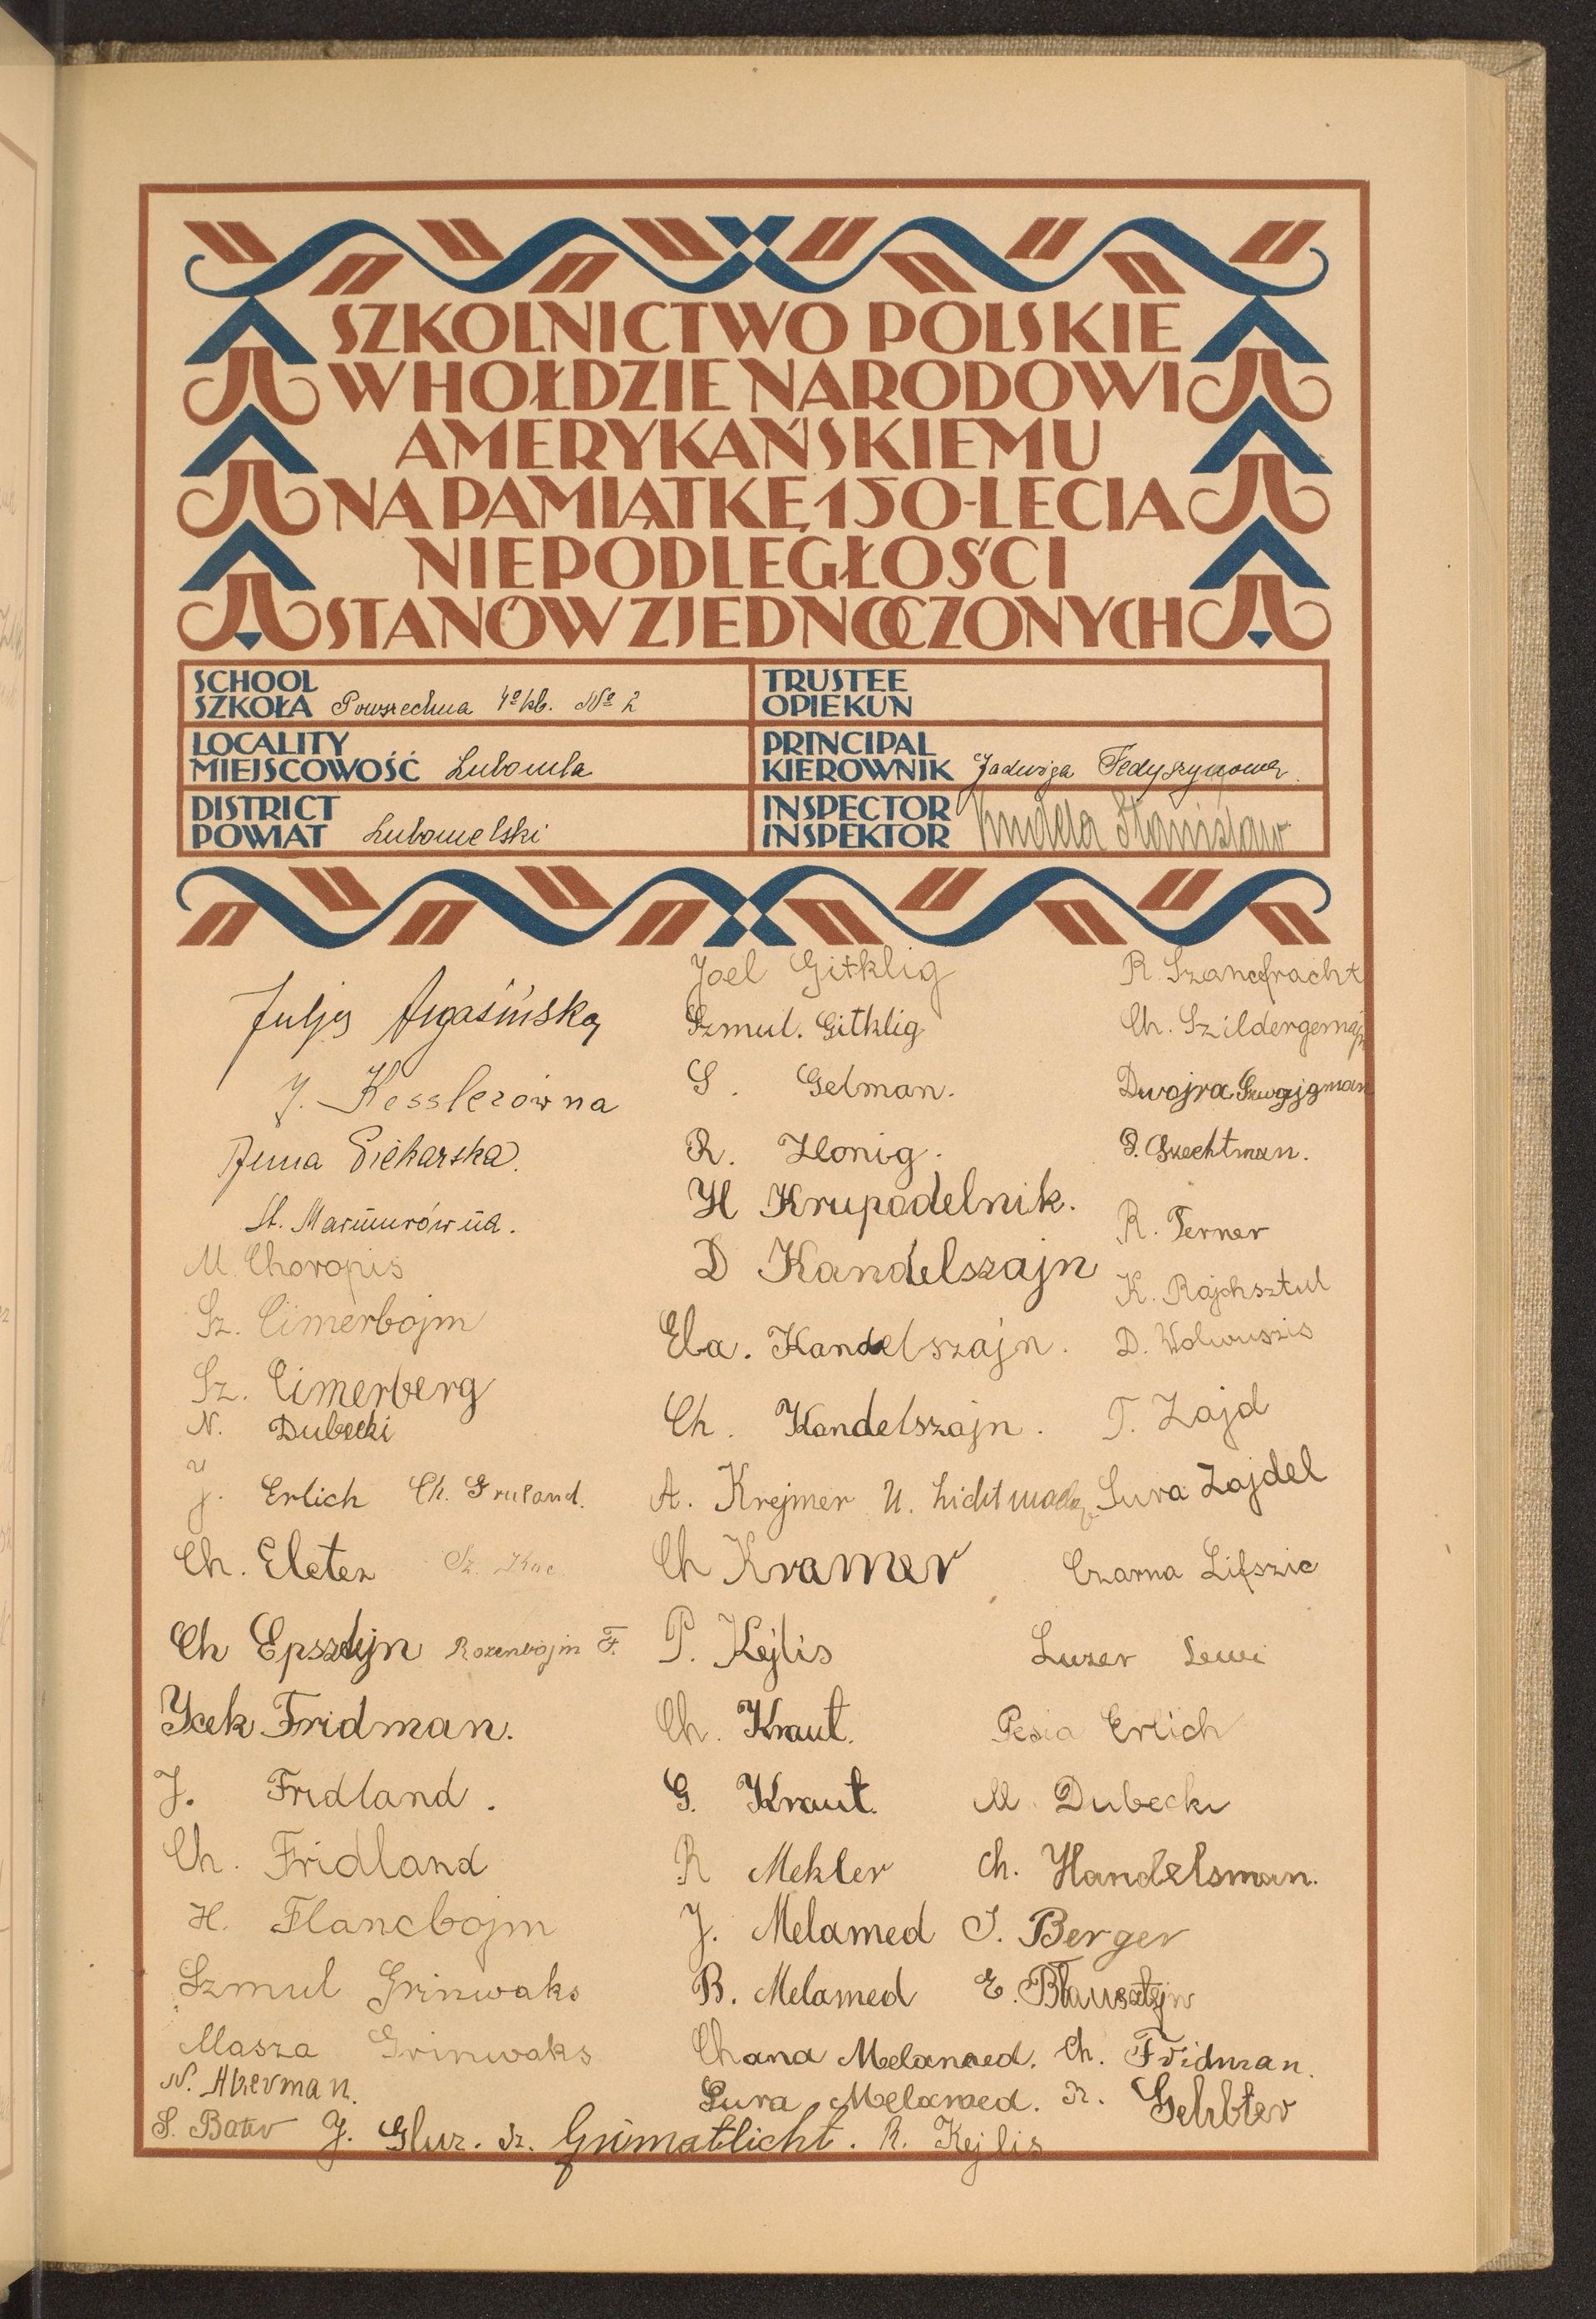 SZKOLNICTWO POLSKIE
W HOŁDZIE NARODOWI
AMERYKAŃSKIEMU
NA PAMIĄTKĘ 150-LECIA
NIEPODLEGŁOŚCI
STANÓW ZJEDNOCZONYCH
SCHOOL
SZKOŁA Powszechna 4º kl. Nº 2
TRUSTEE
OPIEKUN
LOCALITY
MIEJSCOWOŚĆ Luboml
PRINCIPAL
KIEROWNIK Jadwiga Fedyszynowa
DISTRICT
POWIAT Lubomelski
INSPECTOR
INSPEKTOR Stanisław
Julja Argasińska
J. Kesslerówna
Anna Piekarska.
St. Marmurówna.
M. Choropis
Sz. Cimerbojm
Sz. Cimerberg
N. Dubecki
J. Erlich Ch. Fruland.
Ch. Eleter Sz. Kac
Ch Epsztejn Rozenbojm F.
Ycek Fridman.
J. Fridland.
Ch. Fridland
H. Flancbojm
Szmul Grinwaks
Masza Grinwaks
N. Akerman.
S. Bater J. Gluz. Sz. Grimatlicht. R. Kejlis
Joel Gitklig
Szmul. Gitklig
S. Gelman.
R. Honig.
H Krupodelnik.
D Kandelszajn
Ela. Kandelszajn.
Ch. Kandelszajn.
A. Krejmer U.
Ch Kramer
P. Kejlis
Ch. Kraut.
G. Kraut.
R Mekler
J. Melamed
B. Melamed
Chana Melamed.
Sura Melamed.
R. Szancfracht
Ch. Szildergemajn
Dwojra
R. Ferner
K. Rajchsztul
D. Wolwuszis
T. Zajd
Sura Zajdel
Czarna Lifszic
Luzer Lewi
Pesia Erlich
M. Dubecki
Ch. Handelsman.
S. Berger
E. Blausztejn
Ch. Fridman.
Sz. Gelbter